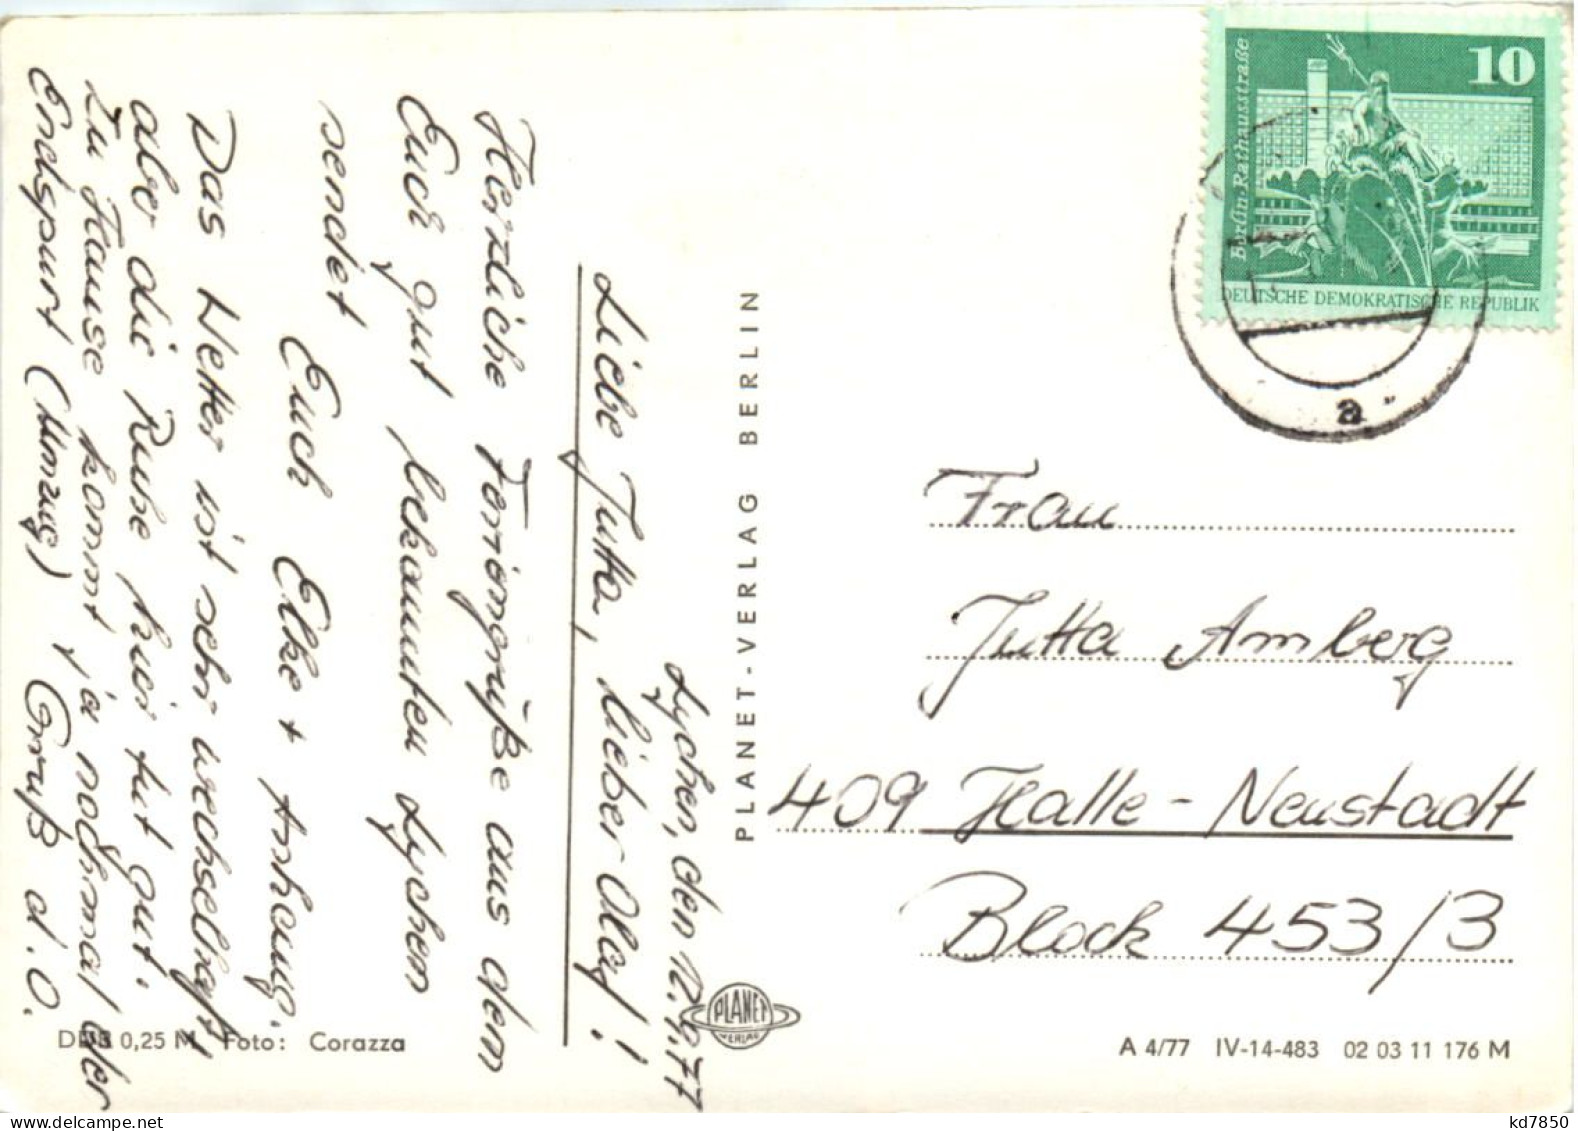 Lychen, den 12.9.77
Liebe Jutta, lieber Olaf!
Herzliche Feriengrüße aus dem
Euch gut bekannten Lychen
sendet
Euch Elke + Anhang.
Das Wetter ist sehr wechselhaft,
aber die Ruhe hier tut gut.
Zu Hause kommt ja nochmal der
Endspurt (Umzug) Gruß d. O.
DDR 0,25 M Foto: Corazza
PLANET-VERLAG BERLIN
PLANET
VERLAG
10
Berlin, Rathausstraße
DEUTSCHE DEMOKRATISCHE REPUBLIK
a
Frau
Jutta Amberg
409 Halle-Neustadt
Block 453/3
A 4/77 IV-14-483 02 03 11 176 M
kd7850